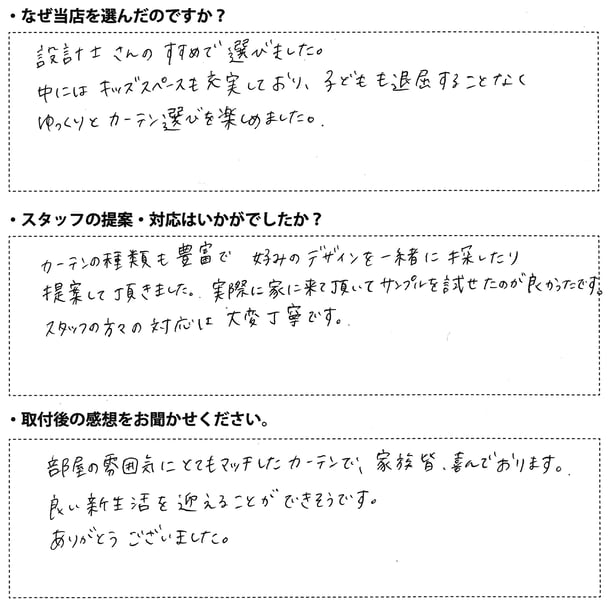 ・なぜ当店を選んだのですか？
設計士さんのすすめで選びました。
中にはキッズスペースも充実しており、子どもも退屈することなく
ゆっくりとカーテン選びを楽しめました。
・スタッフの提案・対応はいかがでしたか？
カーテンの種類も豊富で 好みのデザインを一緒に探したり
提案して頂きました。実際に家に来て頂いてサンプルを試せたのが良かったです。
スタッフの方々の対応は大変丁寧です。
・取付後の感想をお聞かせください。
部屋の雰囲気にとてもマッチしたカーテンで、家族皆、喜んでおります。
良い新生活を迎えることができそうです。
ありがとうございました。